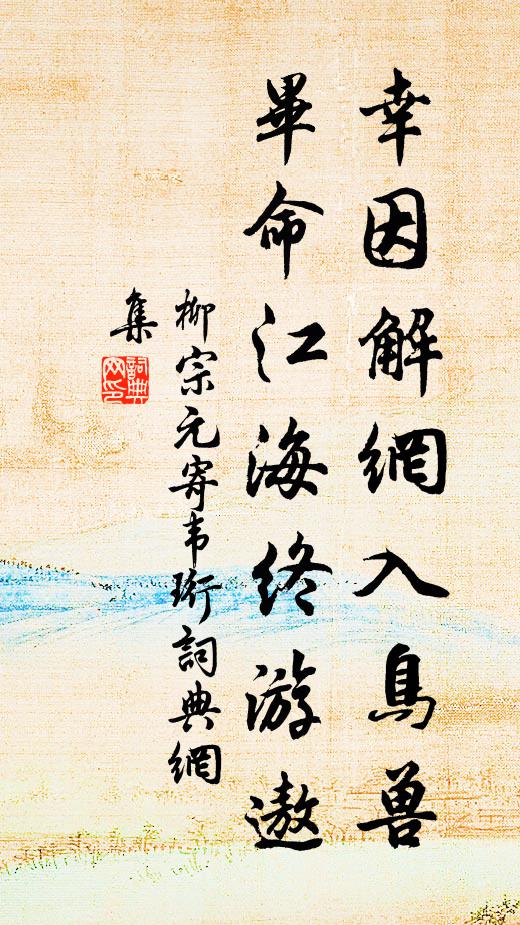 幸因解網入鳥獸
畢命江海終游遨
柳宗元寄韦珩詞典網
集
詞典網印